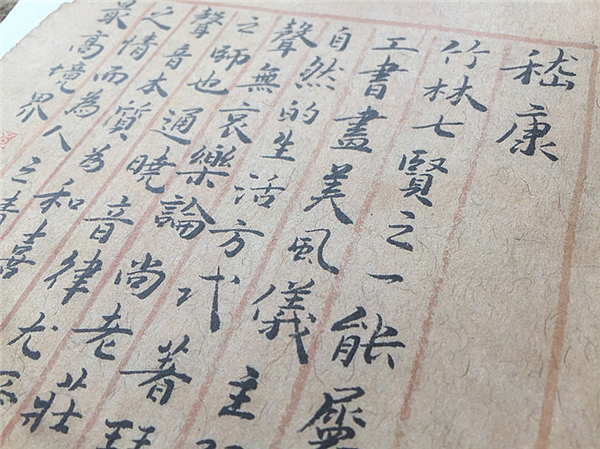 嵇康
竹林七賢之一能屬
工書畫美風儀主
自然的生活方式著琴
聲無哀樂論尚老莊
之師也通曉音律尤
聲音本質為和喜
之情而為人之
最高境界